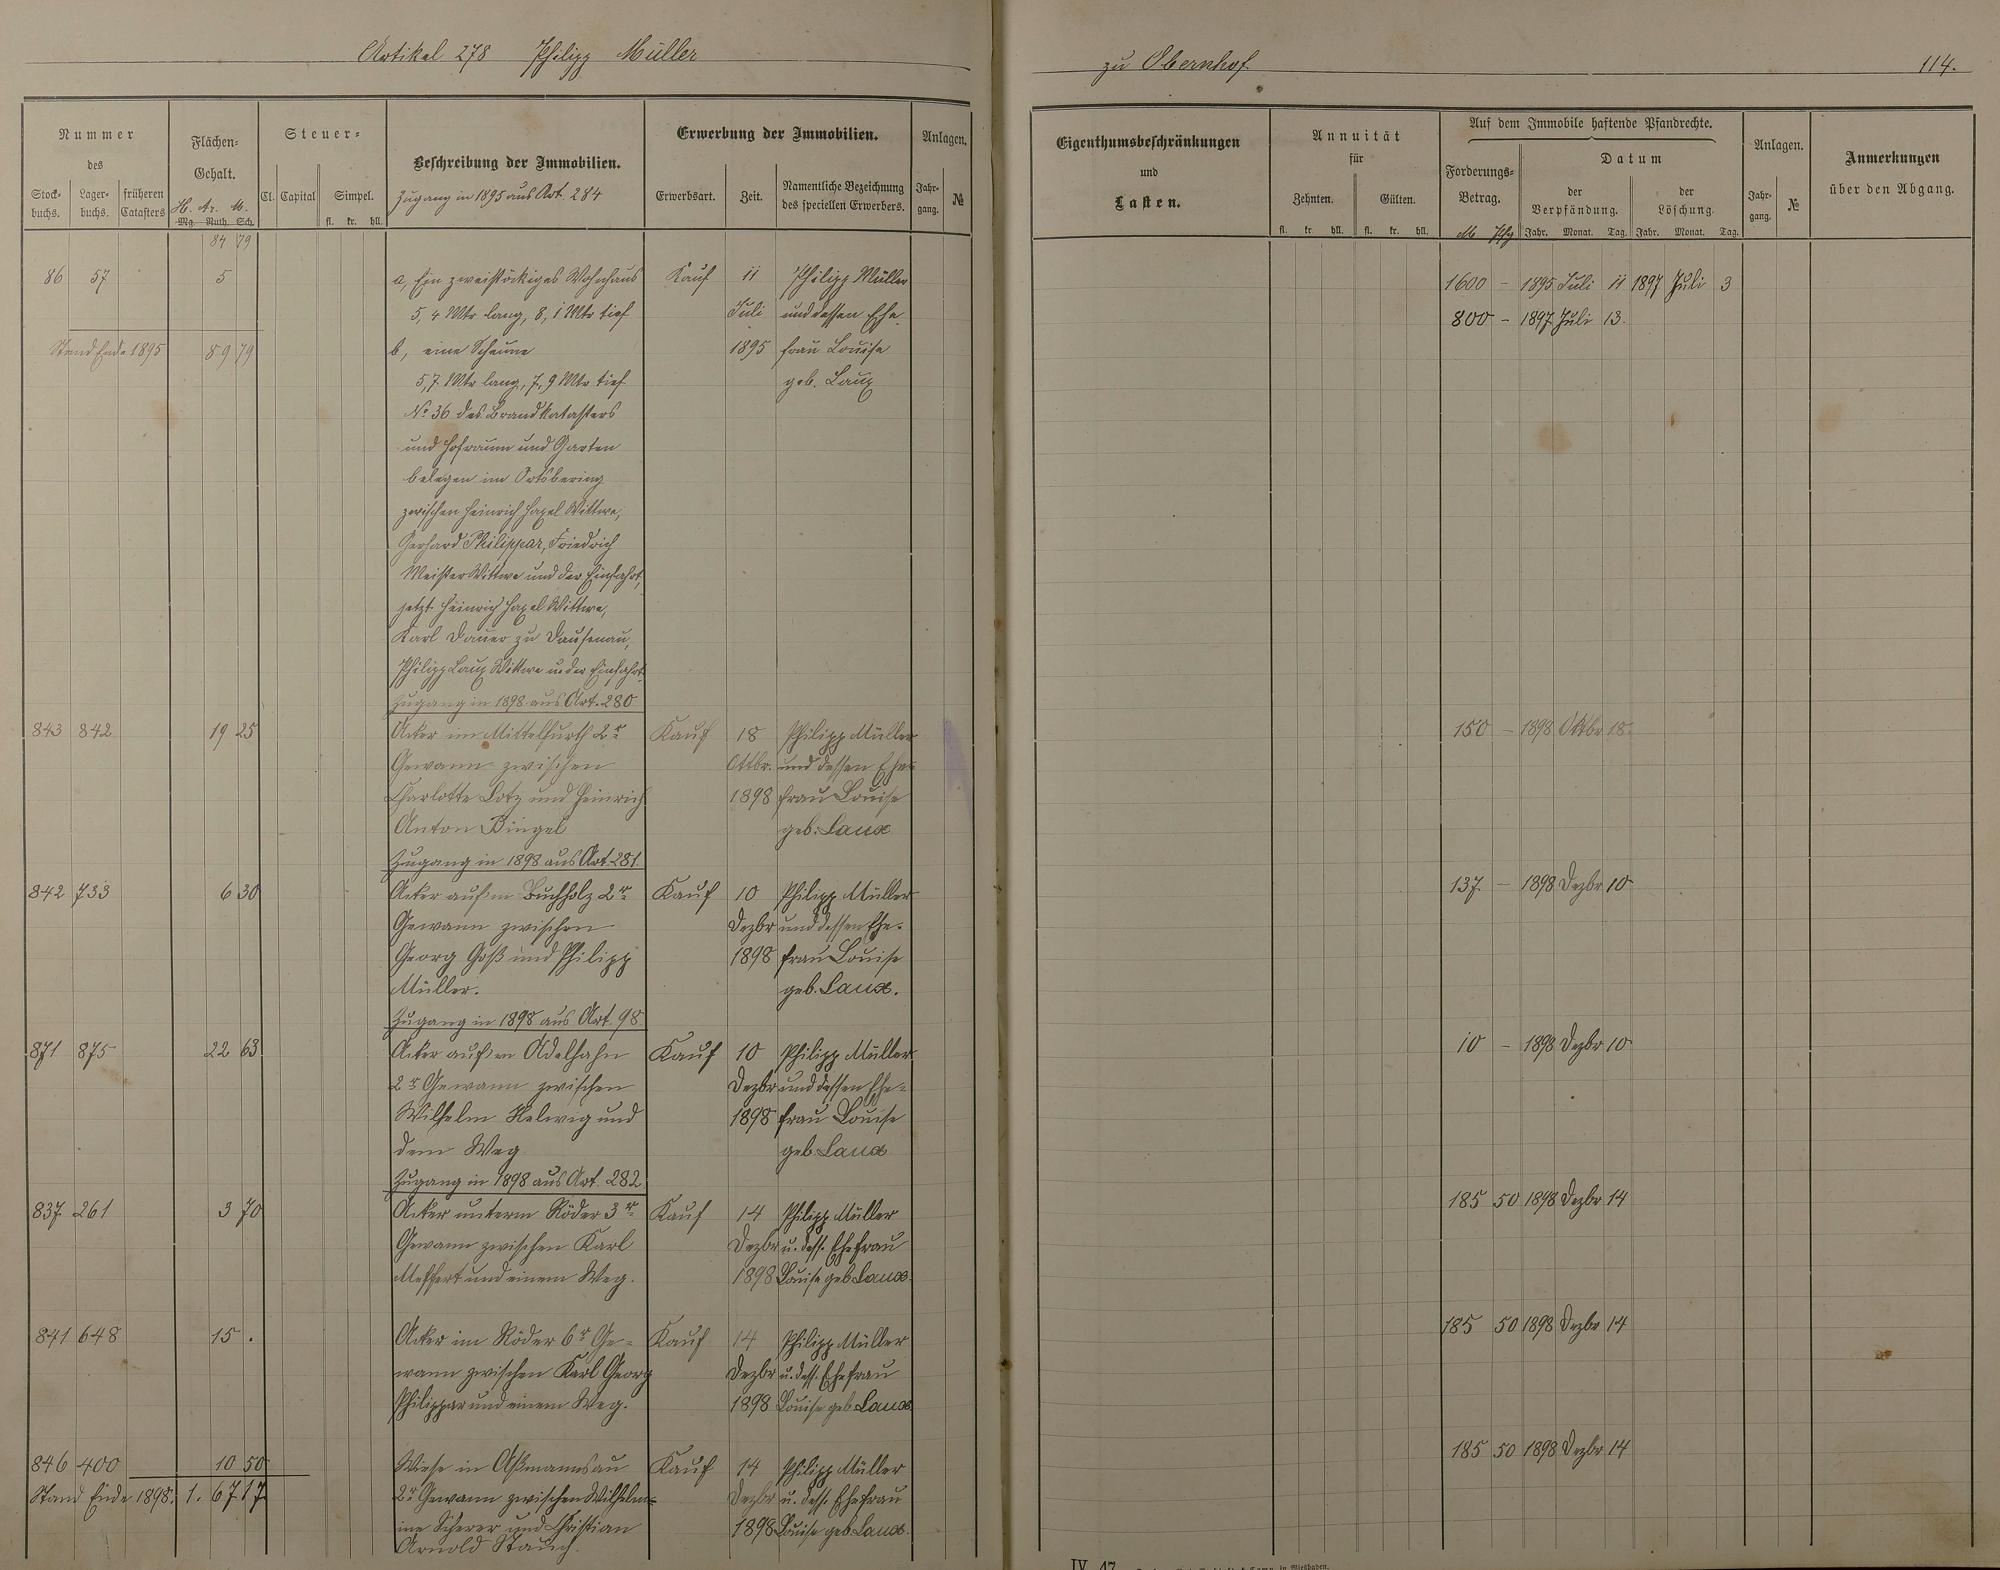 Artikel 278 Philipp Müller
zu Obernhof
114.
Nummer des
Stockbuchs. Lagerbuchs. früheren Catasters
Flächen-Gehalt.
H. Ar. M.
Mg. Ruth. Sch.
Steuer-
Cl. Capital Simpel.
fl. kr. hll.
Beschreibung der Immobilien.
Zugang in 1895 aus Art. 284
Erwerbung der Immobilien.
Erwerbsart. Zeit. Namentliche Bezeichnung des speciellen Erwerbers.
Anlagen.
Jahrgang. №
Eigenthumsbeschränkungen
und
Lasten.
Annuität
für
Zehnten. Gülten.
fl. kr. hll. fl. kr. hll.
Auf dem Immobile haftende Pfandrechte.
Forderungs-Betrag.
M Pfg
Datum
der Verpfändung. der Löschung.
Jahr. Monat. Tag. Jahr. Monat. Tag.
Anlagen.
Jahrgang. №
Anmerkungen
über den Abgang.
84 79
86 57 5 a, Ein zweistöckiges Wohnhaus Kauf 11 Philipp Müller 1600 – 1895 Juli 11 1897 Juli 3
5,4 Mtr lang, 8,1 Mtr tief Juli und dessen Ehe- 800 – 1897 Juli 13.
Stand Ende 1895 89 79 b, eine Scheune 1895 frau Louise
5,7 Mtr lang, 7,9 Mtr tief geb. Laux
No 36 des Brandkatasters
und Hofraum und Garten
belegen im Ortsbering
zwischen Heinrich Hazel Wittwe,
Gerhard Philippar, Friedrich
Meister Wittwe und der Einfahrt,
jetzt Heinrich Hazel Wittwe,
Karl Dauer zu Dausenau,
Philipp Laux Wittwe u. der Einfahrt.
Zugang in 1898 aus Art. 280
843 842 19 25 Acker im Mittelfurth 2r Kauf 18 Philipp Müller 150 – 1898 Oktbr 18.
Gewann zwischen Oktbr. und dessen Ehe-
Charlotte Lotz und Heinrich 1898 frau Louise
Anton Bingel geb. Laux
Zugang in 1898 aus Art. 281.
842 733 6 30 Acker auf'm Buchholz 2r Kauf 10 Philipp Müller 137. – 1898 Dezbr 10
Gewann zwischen Dezbr und dessen Ehe-
Georg Goß und Philipp 1898 frau Louise
Müller. geb. Laux.
Zugang in 1898 aus Art. 98
871 875 22 63 Acker auf'm Adelhahn Kauf 10 Philipp Müller 10 – 1898 Dezbr 10
2r Gewann zwischen Dezbr und dessen Ehe-
Wilhelm Helwig und 1898 frau Louise
dem Weg geb. Laux
Zugang in 1898 aus Art. 282
837 261 3 70 Acker unterm Röder 3r Kauf 14 Philipp Müller 185 50 1898 Dezbr 14
Gewann zwischen Karl Dezbr u. dess. Ehefrau
Meffert und einem Weg. 1898 Louise geb. Laux.
841 648 15 . Acker im Röder 6r Ge- Kauf 14 Philipp Müller 185 50 1898 Dezbr 14
wann zwischen Karl Georg Dezbr u. dess. Ehefrau
Philippar und einem Weg. 1898 Louise geb. Laux.
846 400 10 50 Wiese in Aßmannsau Kauf 14 Philipp Müller 185 50 1898 Dezbr 14
Stand Ende 1898. 1. 67 17 2r Gewann zwischen Wilhelm- Dezbr u. dess. Ehefrau
ine Scherer und Christian 1898 Louise geb. Laux.
Arnold Stauch.
IV. 47